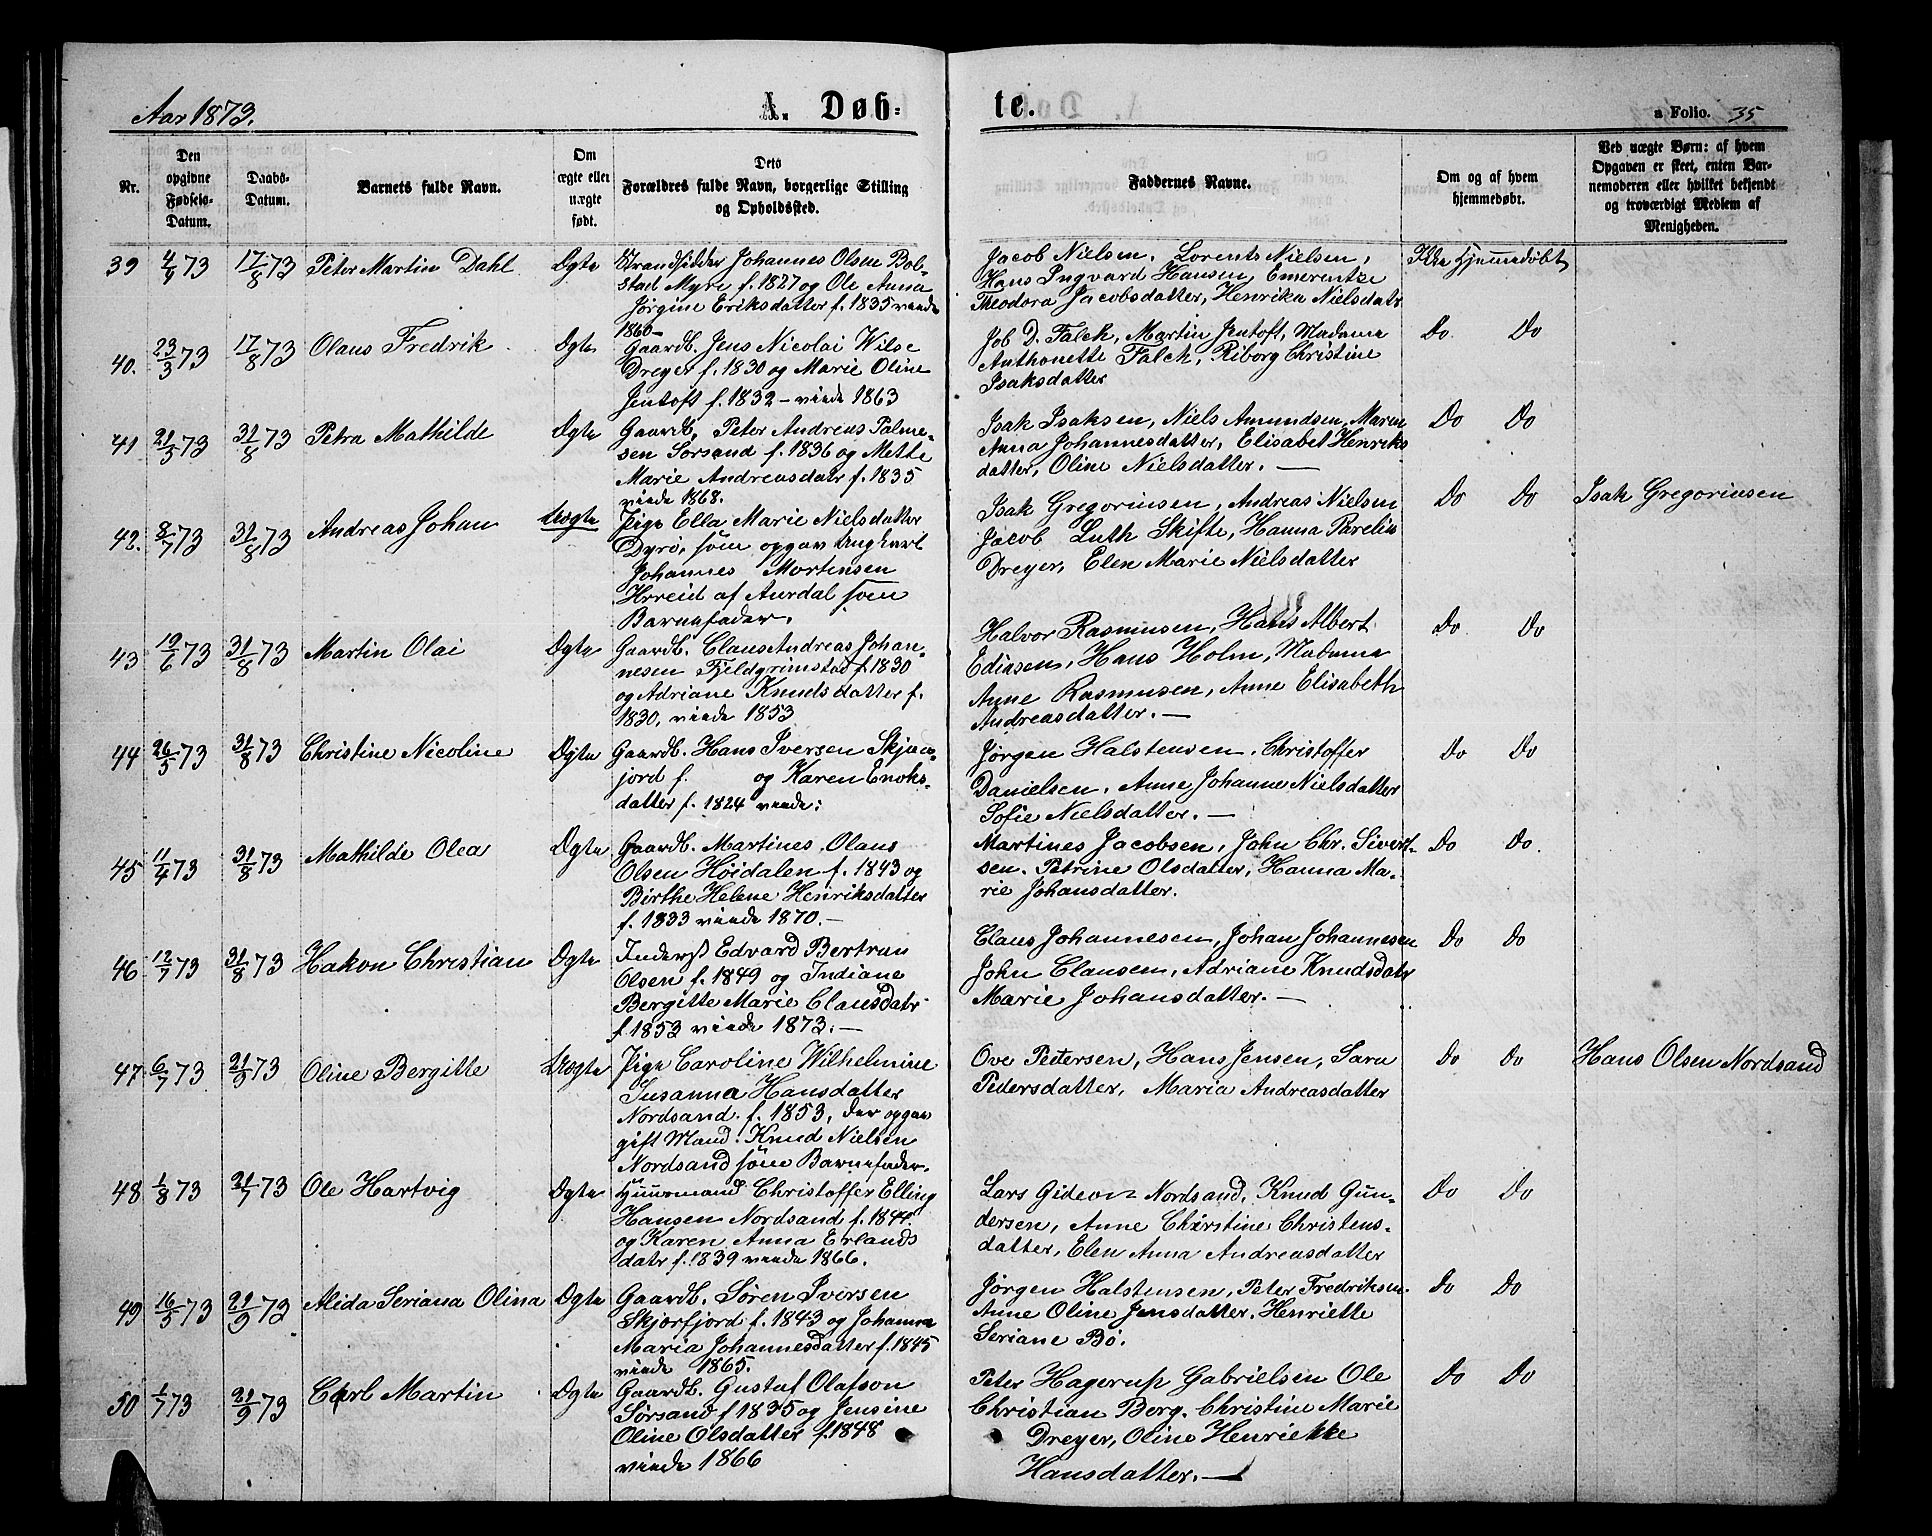 Aar 1873.
A. Døb=
te.
a Folio. 35
Nr.
Den
opgivne
Fødsels-
Datum.
Daabs-
Datum.
Barnets fulde Navn.
Om
ægte eller
uægte
født.
Dets
Forældres fulde Navn, borgerlige Stilling
og Opholdssted.
Faddernes Navne.
Om og af hvem
hjemmedøbt.
Ved uægte Børn: af hvem
Opgaven er skeet, enten Bar-
nemoderen eller hvilket bekjendt
og troværdigt Medlem af
Menigheden.
39 4/4 73 17/8 73 Peter Martin Dahl Ægte
Strandsidder Johannes Olsen Bol-
stad Myre f. 1827 og Ole Anna
Jørgine Eriksdatter f. 1835 viede
1860-
Jacob Nielsen, Lorents Nielsen,
Hans Ingvard Hansen, Emerentze
Theodora Jacobsdatter, Henrika Nielsdatr
Ikke hjemmedøbt
40. 23/3 73 17/8 73 Olaus Fredrik Ægte
Gaardb. Jens Nicolai Wilse
Dreyer f. 1830 og Marie Oline
Jentoft f. 1832 - viede 1863
Job D. Falch, Martin Jentoft, Madame
Anthonette Falch, Riborg Christine
Isaksdatter
Do. Do
41 21/5 73 31/8 73 Petra Mathilde Ægte
Gaardb. Peter Andreas Palme-
sen Sørsand f. 1836 og Mette
Marie Andreasdatr f. 1835
viede 1868.
Isak Isaksen, Niels Amundsen, Maren
Anna Johannesdatter, Elisabet Henriks
datter, Oline Nielsdatter. —
Do Do
42. 8/7 73 31/8 73 Andreas Johan Uægte
Pige Ella Marie Nielsdatter
Dyrø, som opgav Ungkarl
Johannes Mortensen
Hrreid af Aurdal som
Barnefader.
Isak Gregoriusen, Andreas Nielsen
Jacob Luth Skifte, Hanna Parelia
Dreyer, Elen Marie Nielsdatter
Do Do Isak Gregoriusen
43 19/6 73 31/8 73 Martin Olai Ægte
Gaardb. Claus Andreas Johan-
nesen Fjeldgrimstad f. 1830
og Adriane Knudsdatter f.
1830, viede 1853
Halvor Rasmusen, Hans Albert
Ediasen, Hans Holm, Madame
Anne Rasmusen, Anne Elisabeth
Andreasdatter. —
Do. Do
44 26/5 73 31/8 73 Christine Nicoline Ægte
Gaardb. Hans Iversen Skjær-
fjord f. og Karen Enoks-
datter f. 1824 viede:
Jørgen Halstensen, Christoffer
Danielsen, Anne Johanne Nielsdatter
Sofie Nielsdatter. —
Do Do
45 11/4 73 31/8 73 Mathilde Olea Ægte
Gaardb. Martines Olaus
Olsen Høidalen f. 1843 og
Birthe Helene Henriksdatter
f. 1833 viede 1870. —
Martines Jacobsen, John Chr. Sivert-
sen. Petrine Olsdatter, Hanna Ma-
rie Johansdatter.
Do Do.
46 12/7 73 31/8 73 Hakon Christian Ægte
Inderst Edvard Bertran
Olsen f. 1849 og Indiane
Bergitte Marie Clausdatr
f. 1853 viede 1873. —
Claus Johannesen, Johan Johannesen
John Clausen, Adriane Knudsdatr
Marie Johansdatter. —
Do Do
47 6/7 73 21/9 73 Oline Bergitte Uægte
Pige Caroline Wilhelmine
Susanna Hansdatter
Nordsand f. 1853, der opgav
gift Mand: Knud Nielsen
Nordsand som Barnefader.
Ove Pedersen, Hans Jensen, Sara
Pedersdatter, Maria Andreasdatter
Do Do Hans Olsen Nordsand
48 1/8 73 21/7 73 Ole Hartvig Ægte
Huusmand Christoffer Elling
Hansen Nordsand f. 1844.
og Karen Anna Erlands
datr f. 1839 viede 1866.
Lars Gideon Nordsand, Knud Gun-
dersen, Anne Christine Christens-
datter, Elen Anna Andreasdatter
Do Do
49 16/5 73 21/9 73 Alida Seriana Olina Ægte
Gaardb. Søren Iversen
Skjærfjord f. 1843 og Johanna
Maria Johannesdatter f. 1845
viede 1865.
Jørgen Halstensen, Peter Fredriksen
Anne Oline Jensdatter, Henriette
Seriane Bø.
Do Do
50 1/7 73 21/9 73 Carl Martin Ægte
Gaardb. Gustaf Olafson
Sørsand f 1835 og Jensine
Oline Olsdatter f. 1848
viede 1866
Peter Hagerup Gabrielsen Ole
Christian Berg. Christine Marie
Dreyer, Oline Henrikke
Hansdatter. —
Do Do